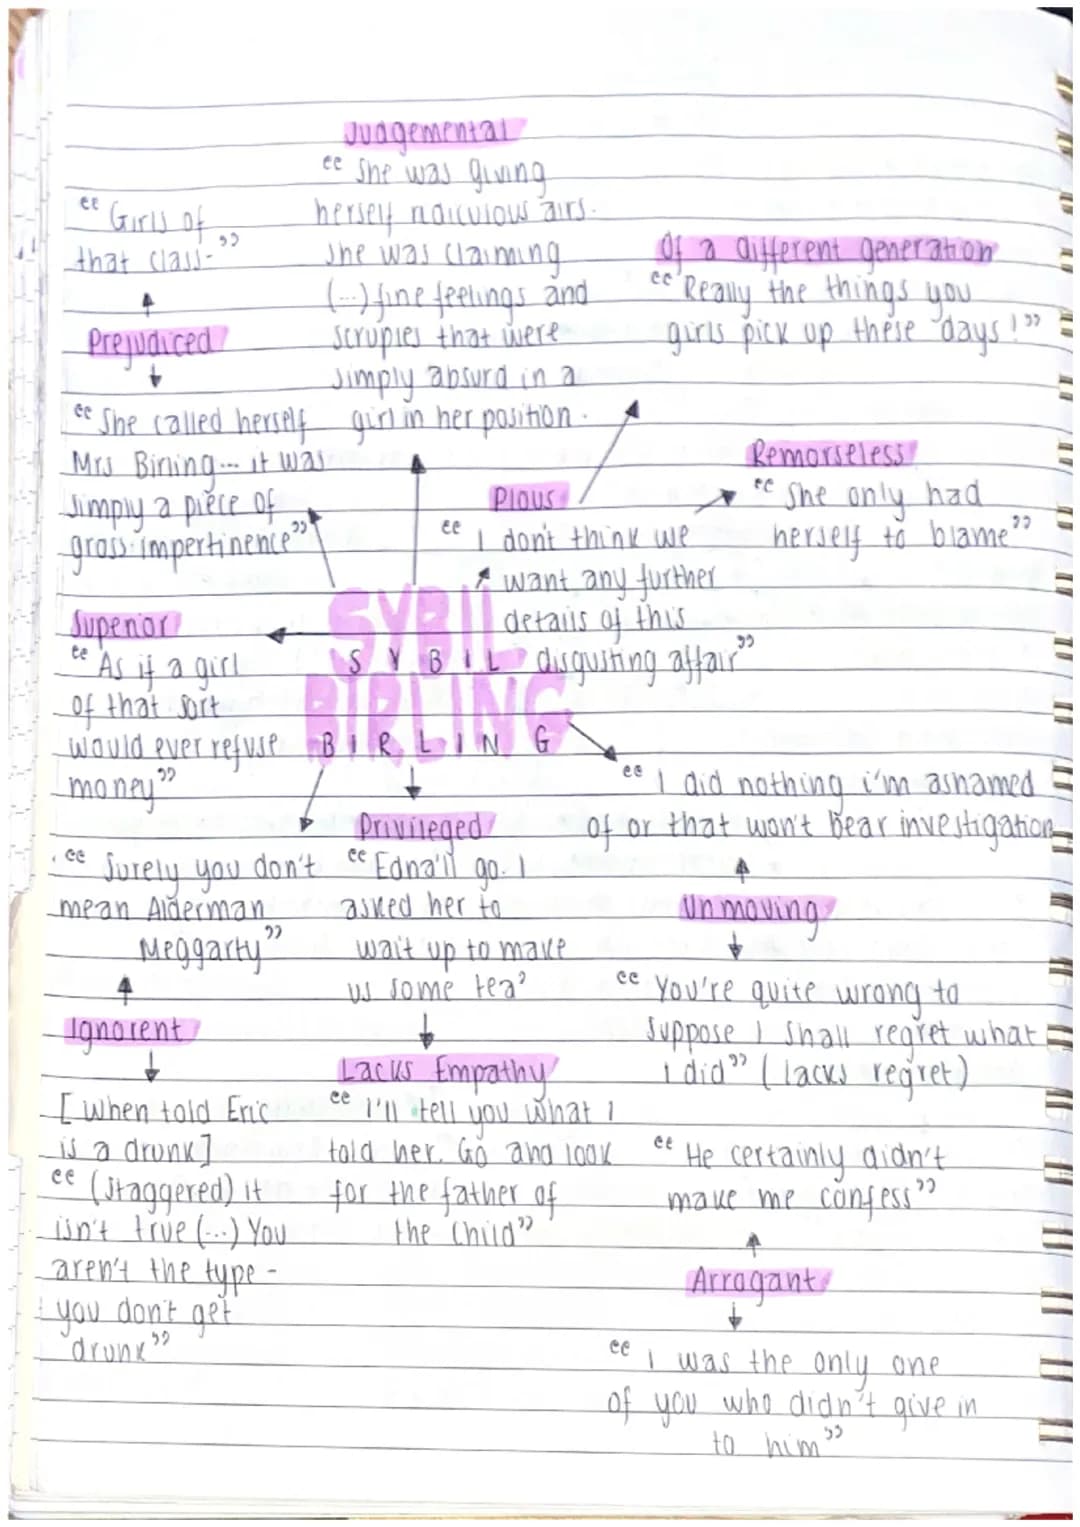 Judgemental
“ She was giving
herself ridiculous airs.
She was claiming
(...) fine feelings and
scruples that were
simply absurd in a
girl in her position.
“ Girls of
that class-”
Prejudiced
“ She called herself
Mrs Birling... it was
simply a piece of
gross impertinence”
Of a different generation
“ Really the things you
girls pick up these days!”
Remorseless
“ She only had
herself to blame”
Pious
“ I don't think we
want any further
details of this
disgusting affair”
Superior
“ As if a girl
of that sort
would ever refuse
money”
SYBIL
S Y B I L
BIRLING
B I R L I N G
“ I did nothing i'm ashamed
of or that won't bear investigation
Unmoving
“ You're quite wrong to
suppose I shall regret what
I did” (lacks regret)
“ Surely you don't
mean Alderman
Meggarty”
Ignorent
[when told Eric
is a drunk]
“ (staggered) it
isn't true (...) You
aren't the type -
you don't get
drunk”
Privileged
“ Edna'll go. I
asked her to
wait up to make
us some tea’
Lacks Empathy
“ i'll tell you what I
told her. Go and look
for the father of
the child”
“ He certainly didn't
make me confess”
Arrogant
“ I was the only one
of you who didn't give in
to him”